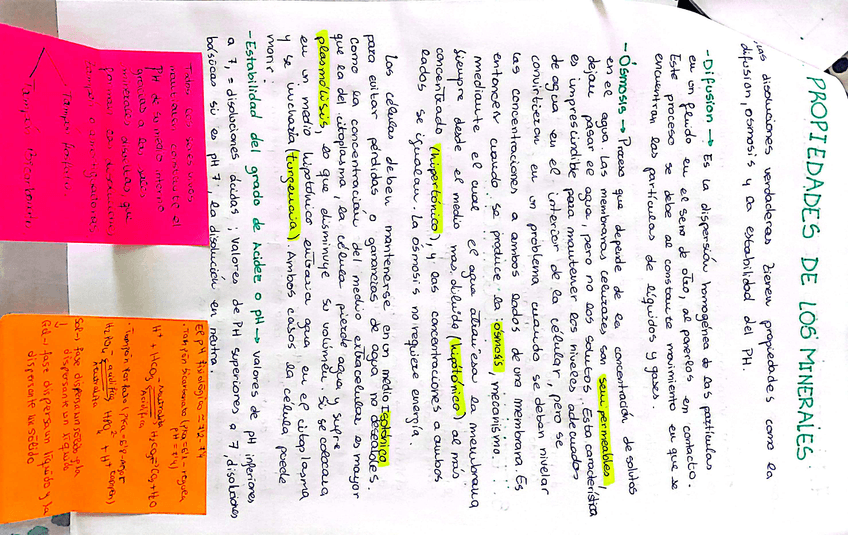 PROPIEDADES DE LOS MINERALES
Las disoluciones verdaderas tienen propiedades como la
difusión, osmosis y la estabilidad del PH.
-Difusion → Es la dispersión homogénea de las partículas
en un fluido en el seno de otro, al ponerlos en contacto.
Este proceso se debe al constante movimiento en que se
encuentran las partículas de líquidos y gases.
-Ósmosis → Proceso que depende de la concentración de solutos
en el agua. Las membranas celulares son semipermeables,
dejan pasar el agua, pero no los solutos. Esta característica
es imprescindible para mantener los niveles adecuados
de agua en el interior de la célular, pero se
convirtieron en un problema cuando se deban nivelar
las concentraciones a ambos lados de una membrana. Es
entonces cuando se produce la osmosis, mecanismo
mediante el cual el agua atraviesa la membrana
siempre desde el medio mas diluido (hipotónico) al mas
concentrado (hipertónico), y las concentraciones a ambos
lados se igualan. La ósmosis no requiere energía.
Las células deben mantenerse en un medio Isotónico
para evitar pérdidas o ganancias de agua no deseables.
Como la concentracion del medio extracelular es mayor
que la del citoplasma, la célula pierde agua y sufre
plasmólisis, lo que disminuye su volumen. Si se colocara
en un medio hipotónico entraria agua en el citoplasma
y se hincharía (turgencia). Ambos casos la célula puede
morir.
-Estabilidad del grado de Acidez o pH → valores de pH inferiores
a 7, = disoluciones ácidas; valores de PH superiores a 7, disoluciones
básicas si es pH 7, la disolución en neutra.
Todos los seres vivos
mantienen constante el
PH de su medio interno
gracias a las sales
minerales disueltas que
forman las disoluciones
tampón o amortiguadoras
Tampón fosfato
Tampón bicarbonato
El pH fisiológico = 7'2-7'4
H⁺ + HCO₃⁻ H₂CO₃ CO₂ + H₂O
H₂PO₄⁻ HPO₄²⁻ + H⁺
Sol → fase dispersa un sólido y la
dispersante un líquido
y
Gel → fase dispersa un líquido y la
dispersante un sólido